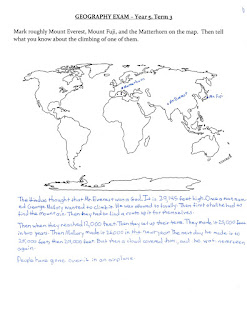 GEOGRAPHY EXAM – Year 5, Term 3
Mark roughly Mount Everest, Mount Fuji, and the Matterhorn on the map. Then tell
what you know about the climbing of one of them.
Matterhorn
Mt Everest
Mt Fuji
The Hindus thought that Mt. Everest was a God. It is 29,145 feet high. Once a man nam
ed George Mallory wanted to climb it. He was allowed to finally. Then first he had to
find the mountain. Then they had to find a route up it for themselves.
Then when they reached 12,000 feet. Then they set up their tents. They made it 25,000 feet
in two years. Then Mallory made it 26,000 in the next year. The next day he made it to
28,000 feet then 29,000 feet. But then a cloud covered him, and he was never seen
again.
People have gone over it in an airplane.